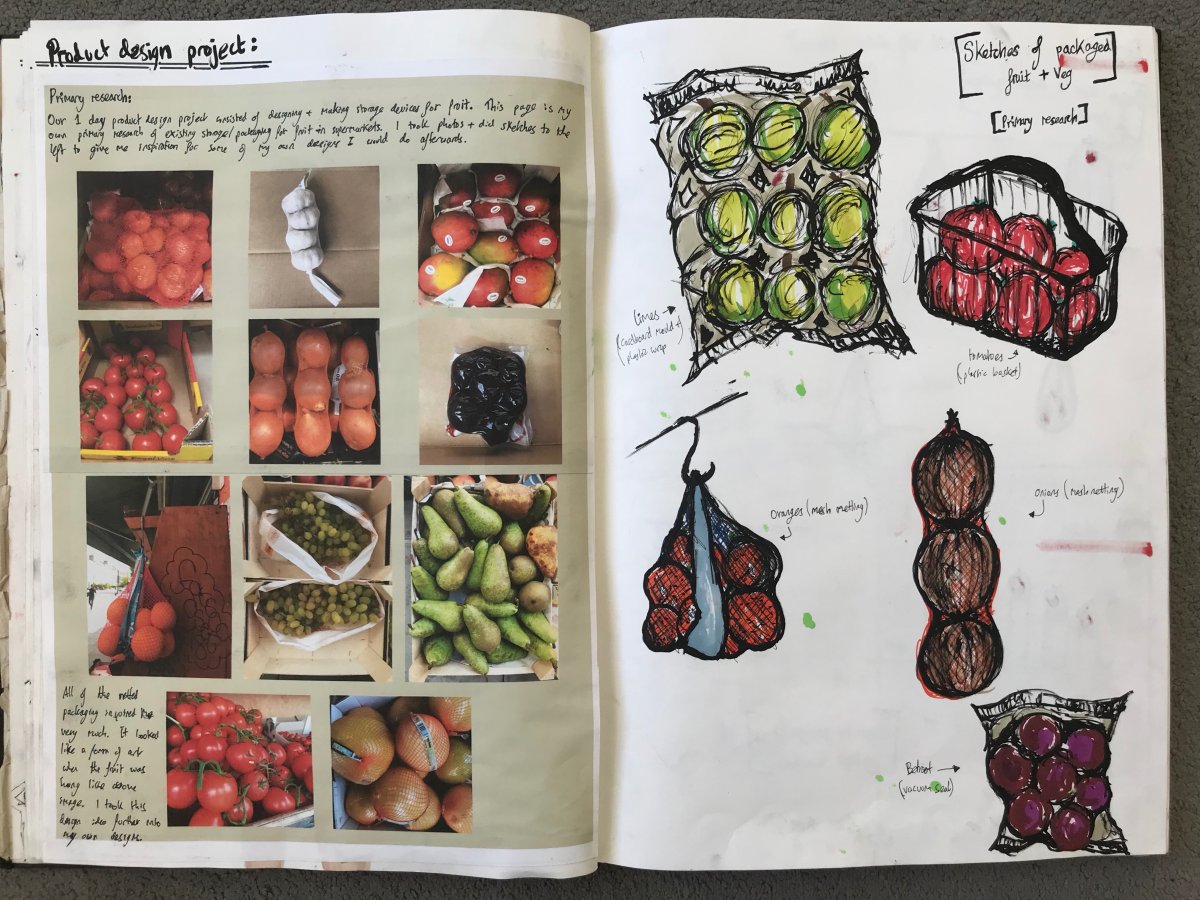 Product design project:
Primary research:
Our 1 day product design project consisted of designing + making storage devices for fruit. This page is my
own primary research of existing storage/packaging for fruit in supermarkets. I took photos + did sketches to the
left to give me inspiration for some of my own designs I would do afterwards.
All of the netted
packaging inspired me
very much. It looked
like a form of art
when the fruit was
hung like above
image. I took this
design idea further into
my own designs.
Sketches of packaged
fruit + veg
[Primary research]
limes →
(cardboard mould +
plastic wrap
tomatoes →
(plastic basket)
oranges (mesh netting)
onions (mesh netting)
Betroot →
(vacuum seal)